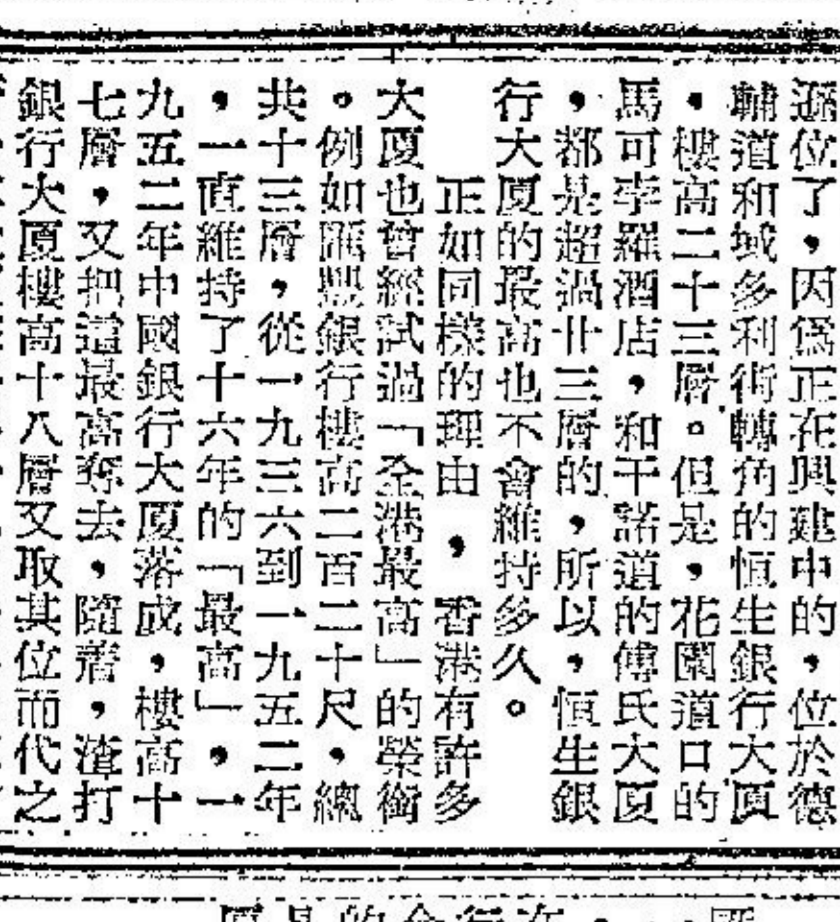 遜位了，因爲正在興建中的，位於德
輔道和域多利街轉角的恒生銀行大廈
，樓高二十三層。但是，花園道口的
馬可孛羅酒店，和干諾道的傅氏大廈
，都是超過廿三層的，所以，恒生銀
行大厦的最高也不會維持多久。
正如同樣的理由，香港有許多
大廈也曾經試過「全港最高」的榮銜
。例如匯豐銀行樓高二百二十尺，總
共十三層，從一九三六到一九五二年
，一直維持了十六年的「最高」，一
九五二年中國銀行大廈落成，樓高十
七層，又把這最高奪去，隨着，渣打
銀行大廈樓高十八層又取其位而代之